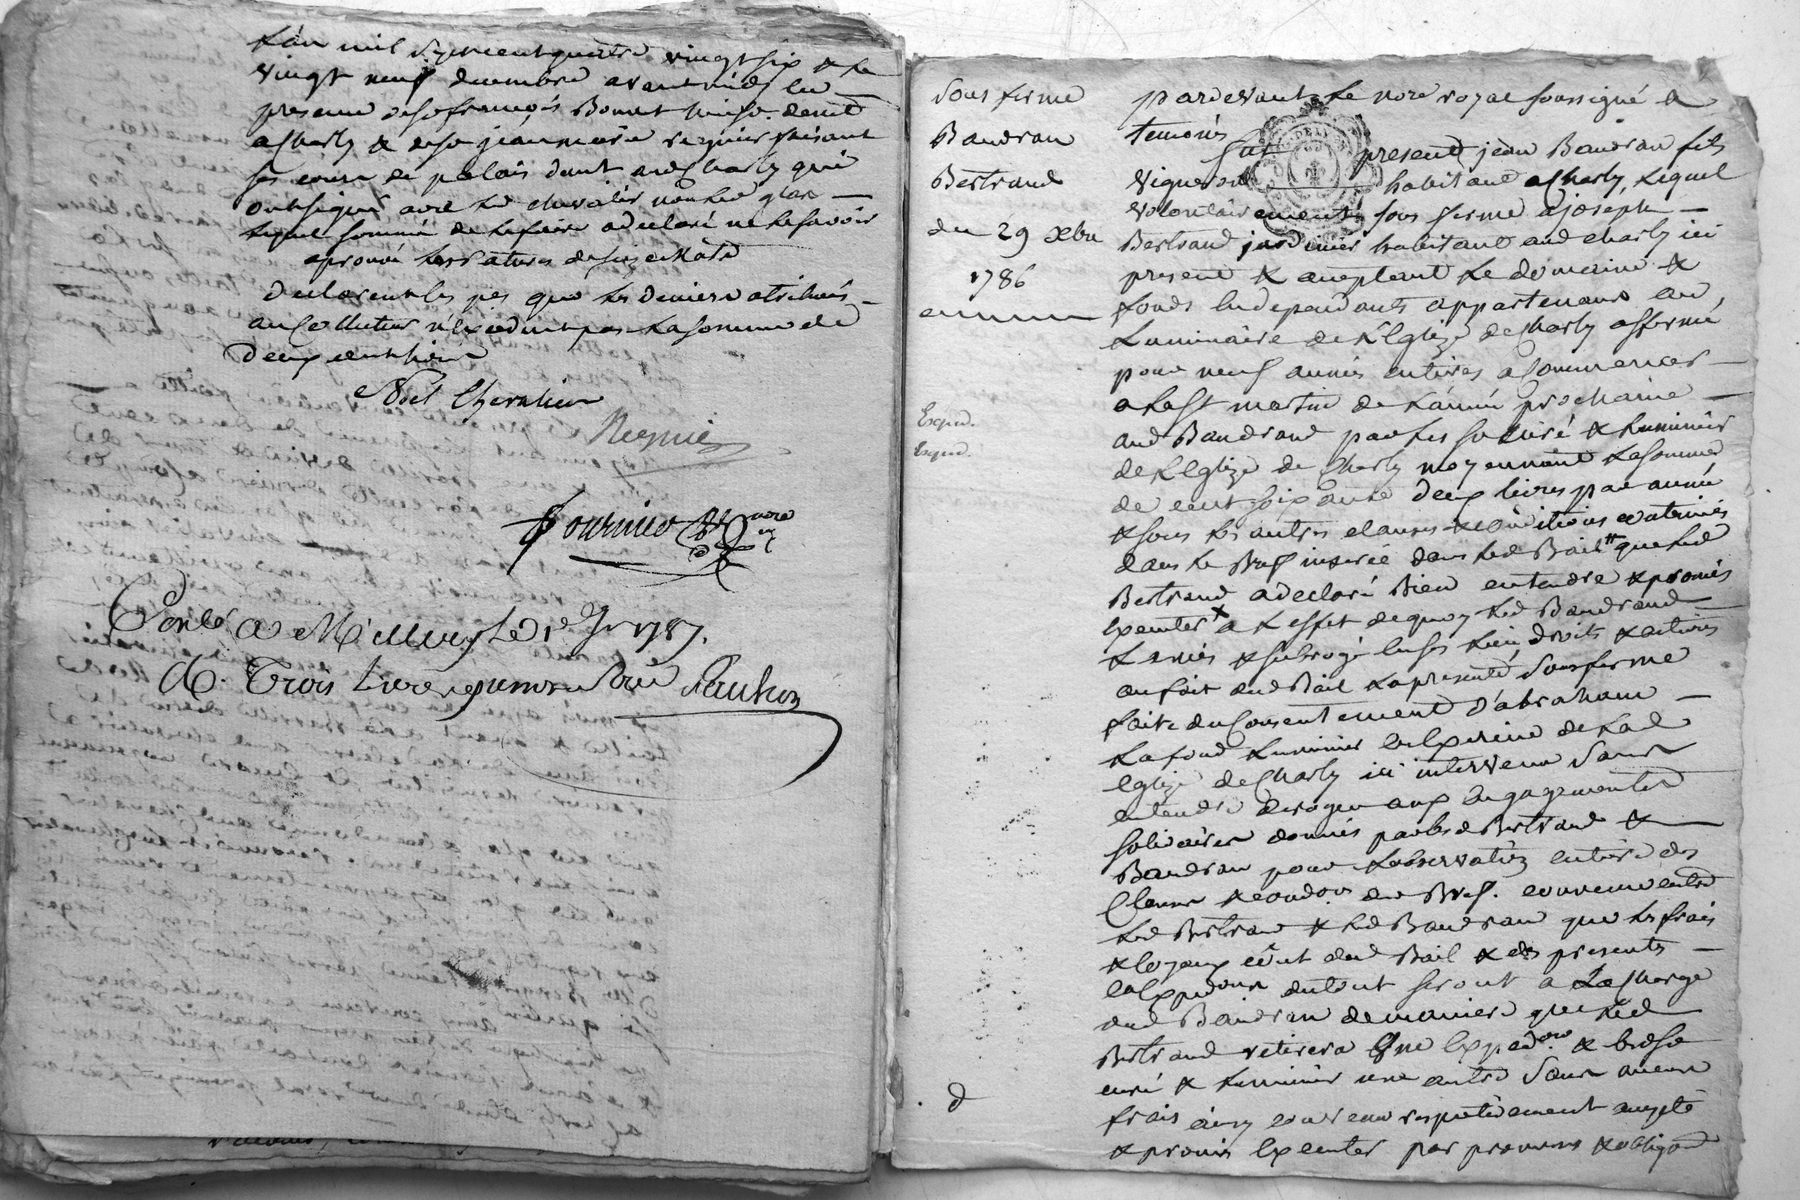 L'an mil sept cent quatre vingt six & le
vingt neuf decembre avant midy en
presence de sr françois Bonnet demt
a Charly & de sr jean marie regnier faisant
ses cours de palais demt aud Charly qui
ont signé avec led chevalier non led
lequel sommé de le faire a declaré ne le savoir
aprouvé les ratures
declarent les pes que les deniers atribués
au Collecteur n'excedent pas la somme de
deux cent
Noel Chevalier
Regnier
Fournier nore
Conlé a Millery le 1787.
R. Trois livres
Sous ferme
Baudran
Bertrand
du 29 Xbre
1786
Exped.
Exped.
d
pardevant le nore royal soussigné &
temoins
fut present jean Baudran fils
vigneron habitant a Charly, lequel
volontairement sous ferme a joseph
Bertrand jardinier habitant aud Charly ici
present & acceptant le domaine &
fonds en dependants appartenans au
Luminaire de l'Eglize de Charly affermé
pour neuf années entieres a Commencer
a la St martin de l'année prochaine
aud Baudrand par les sr Curé & luminier
de l'Eglize de Charly moyennant la somme
de cent soixante deux livres par année
& sous les autres clauses & conditions contenües
dans le Bref inserée dans led Bail que led
Bertrand a declaré bien entendre & promis
Executer a l'effet de quoy led Baudrand
l'a mis & subrogé en ses lieu, droits & actions
au fait dud Bail la presente sous ferme
faite du Consentement d'abraham
Lafond Luminier en Exercice de lad
eglize de Charly ici intervenu sans
entendre deroger aux Engagements
solidaires donnés par lesd Bertrand &
Baudran pour l'observation entiere des
Clauses & condons dud Bref. convenu entre
led Bertrand & led Baudran que les frais
& loyaux coût dud Bail & des presentes
en Expedions du tout seront a La Charge
dud Baudran de maniere que led
Bertrand retirera Une Expedion & led sr
curé & Luminier une autre sans aucuns
frais ainsy convenu respectivement accepté
& promis Executer par promesses & obligons